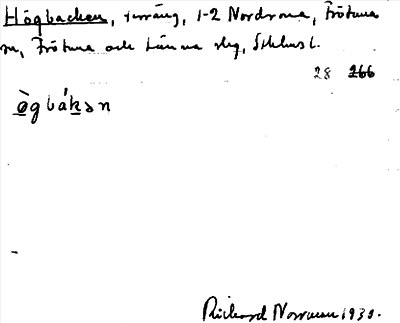 Högbacken, terräng, 1-2 Nordrona, Frötuna
sn, Frötuna och Länna slg, Sthlms l.
28 266
ògbákən
Rickard Norman 1930.